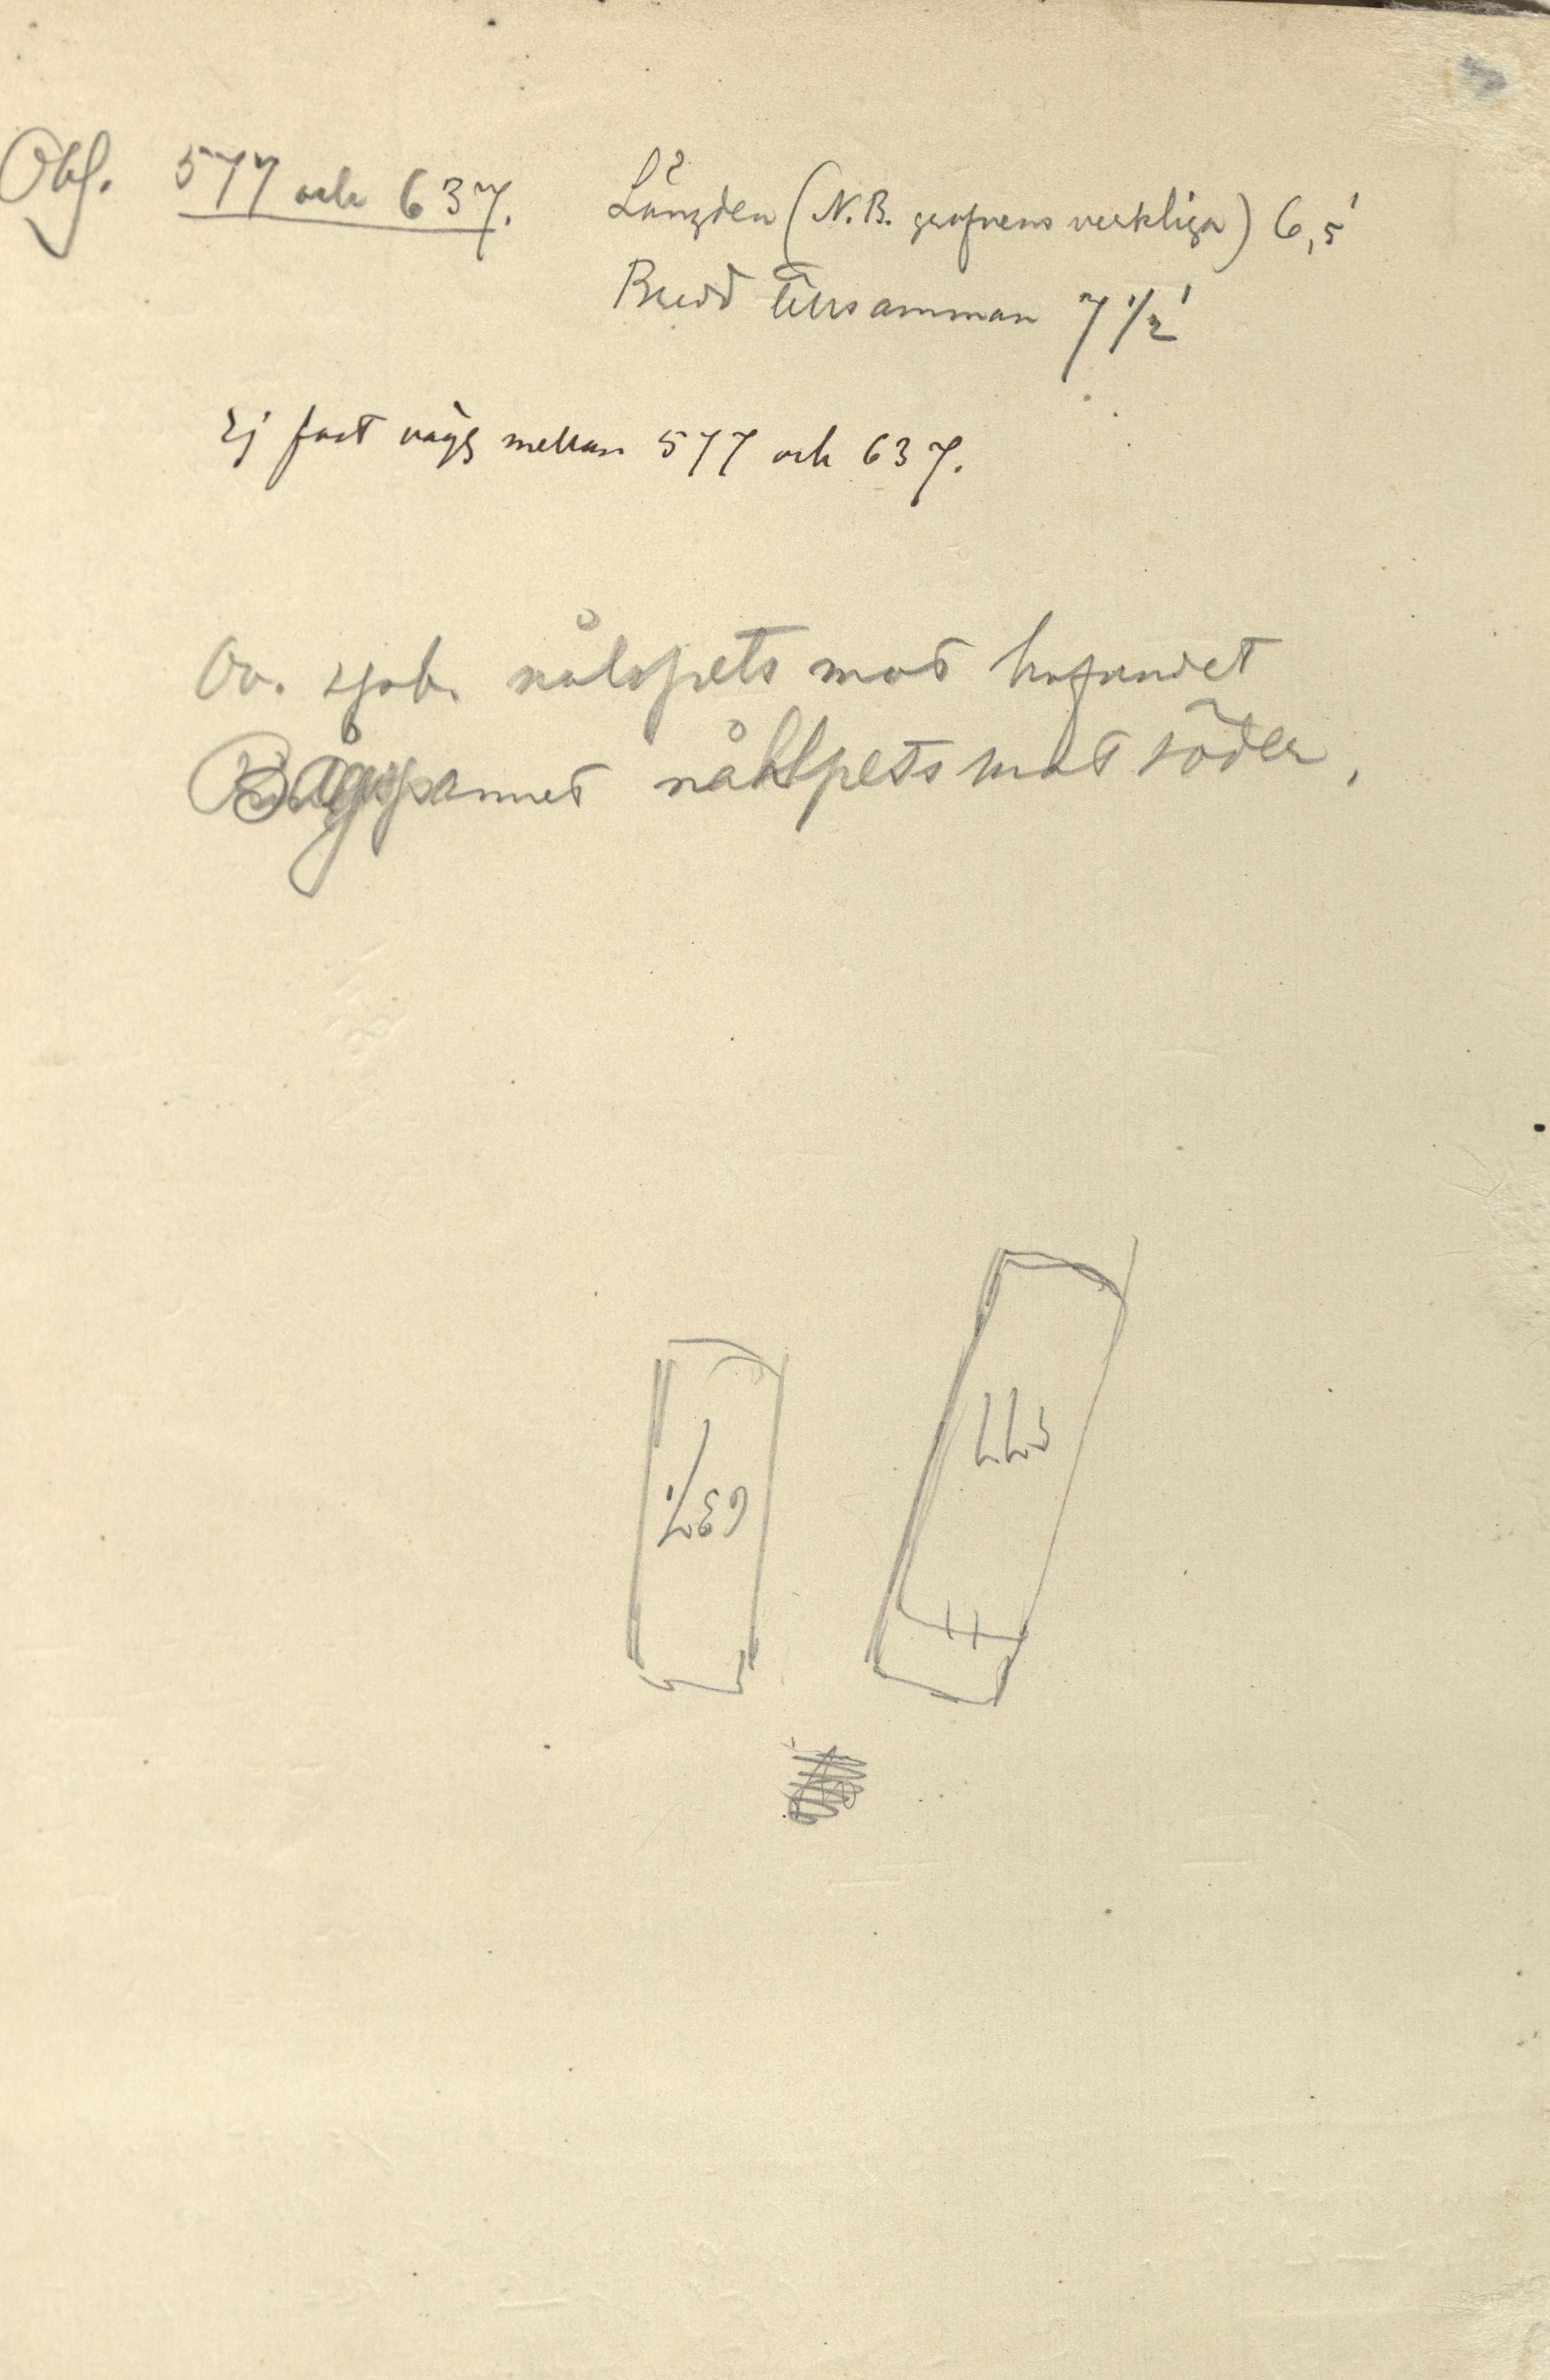 Obs. 577 och 637. Längden (N.B. grafvens verkliga) 6,5'
Bredd tillsamman 7 1/2'
Ej fast vägg mellan 577 och 637.
Ov. sp.b. nålspets mot hufvudet
Bågspännet nålspets mot söder.
637.
577